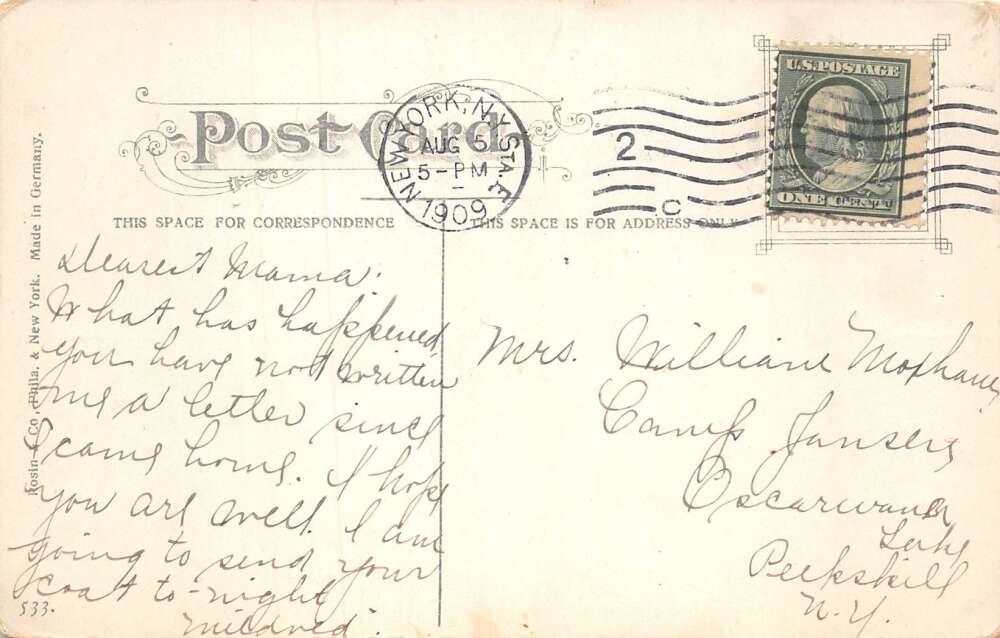 Post Card
NEW YORK, N.Y. STA. E
AUG 5
5-PM
1909
2
C
U.S. POSTAGE
ONE CENT
THIS SPACE FOR CORRESPONDENCE
THIS SPACE IS FOR ADDRESS ONLY
Rosin & Co, Phila. & New York. Made in Germany.
Dearest Mama:
What has happened,
you have not written
me a letter since
I came home. I hope
you are well. I am
going to send your
coat to-night
Mildred.
533.
Mrs. William
Camp
Oscarwana
Lake
Peekskill
N.Y.